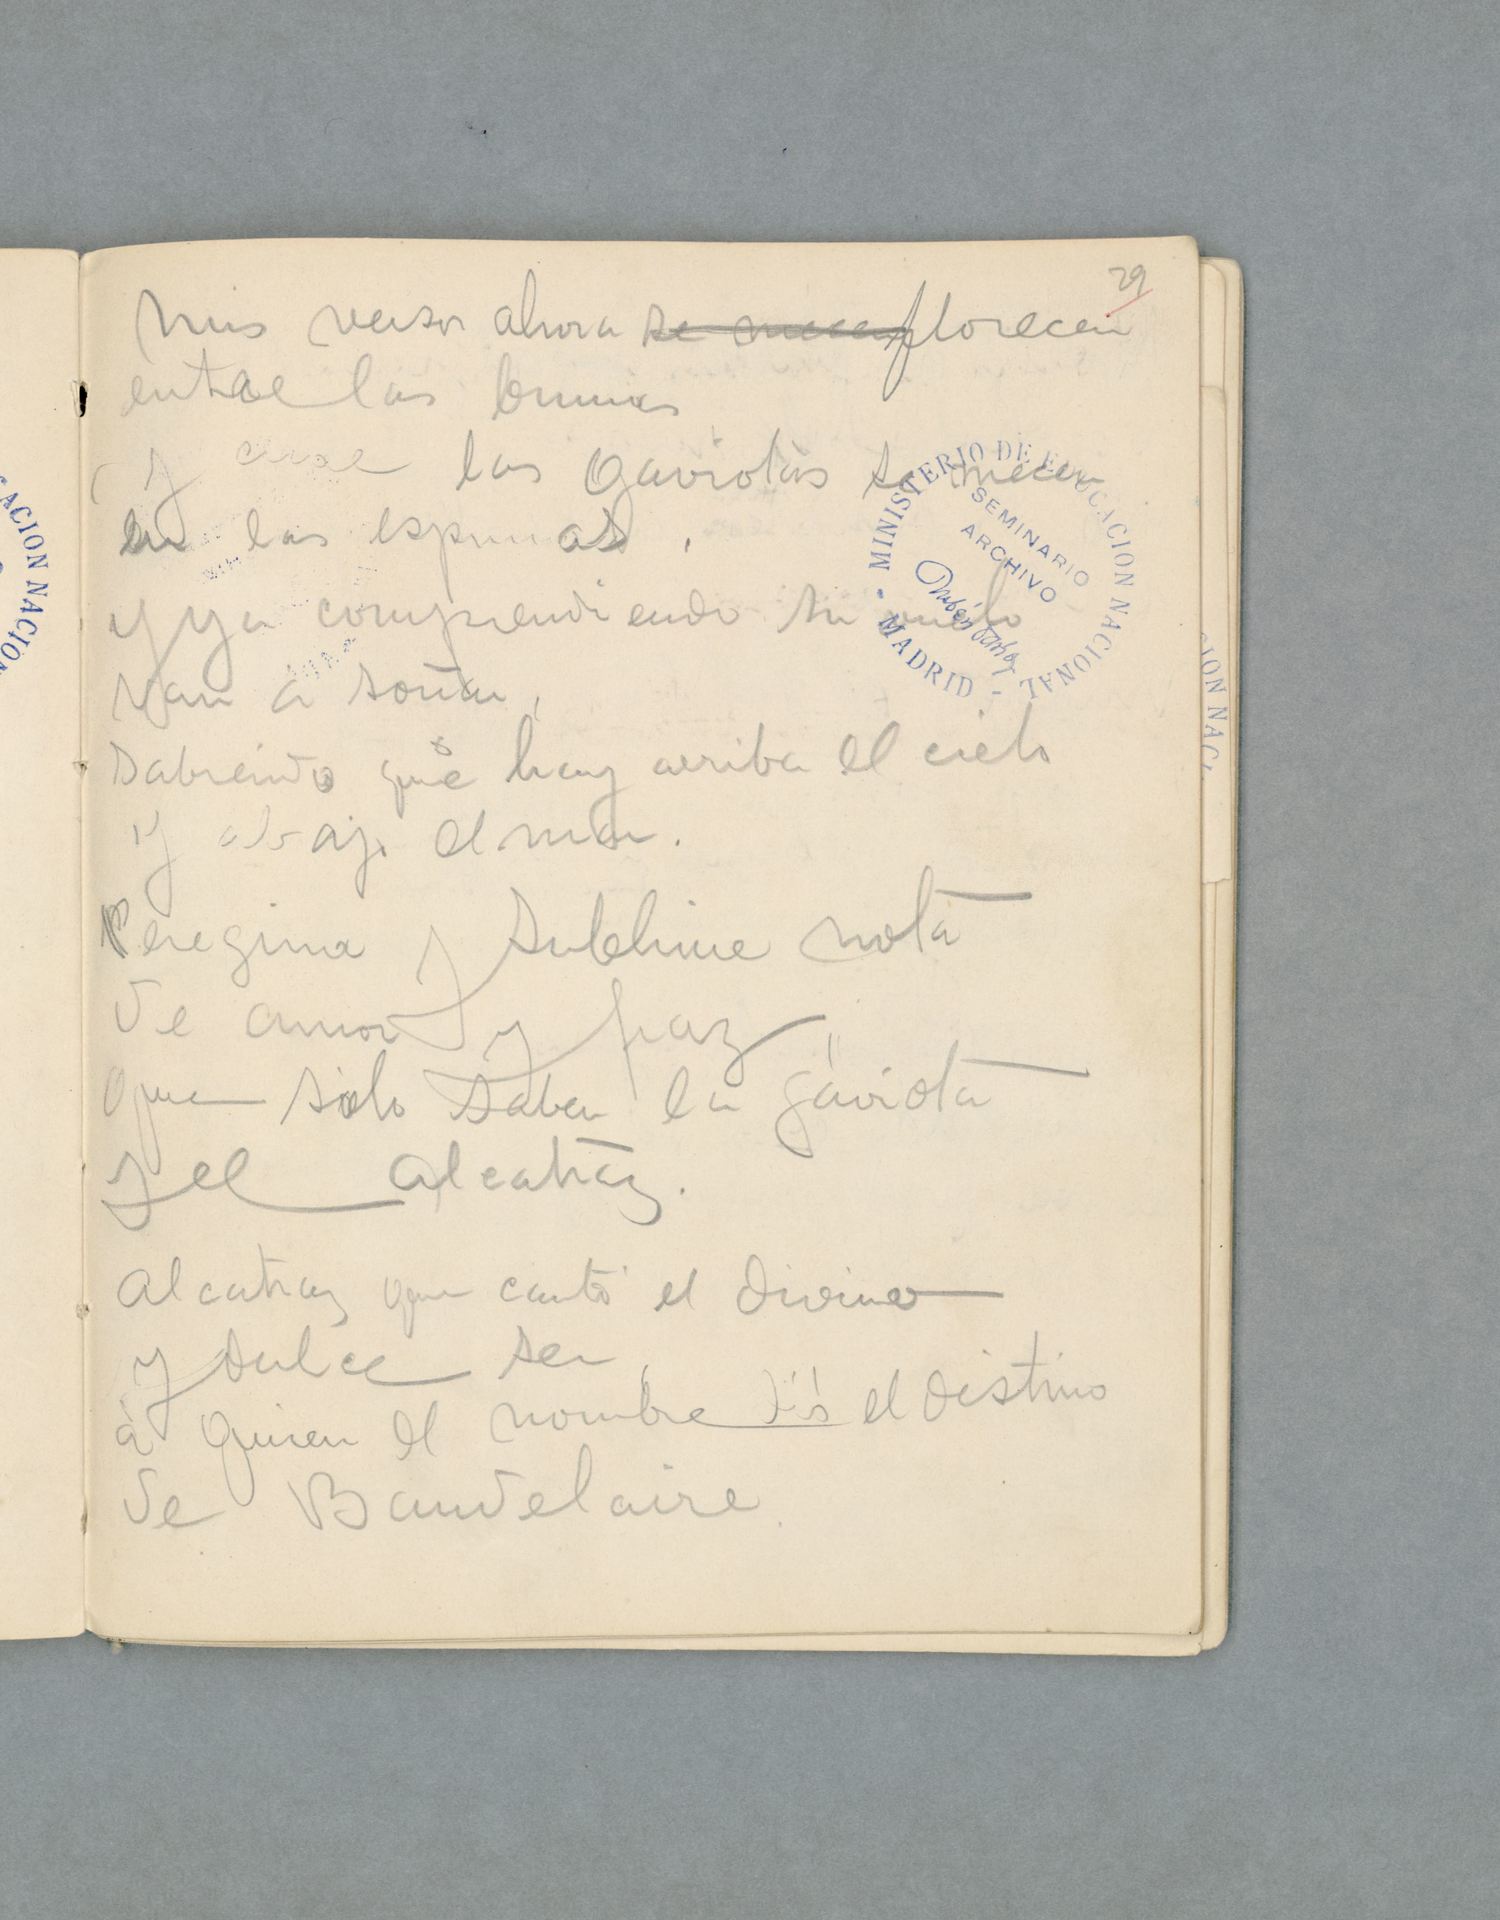 29
Mis versos ahora se mecen florecen
entre las brumas
y las gaviotas se mecen
en las espumas,
y ya comprendiendo su vuelo
van a soñar,
sabiendo que hay arriba el cielo
y abajo el mar.
Peregrina y sublime nota
de amor y paz,
que solo saben la gaviota
y el alcatraz.
Alcatraz que cantó el divino
y dulce ser,
á quien el nombre dió el destino
de Baudelaire
MINISTERIO DE EDUCACION NACIONAL - MADRID -
SEMINARIO
ARCHIVO
Rubén Darío
CACION NACION
CION NAC